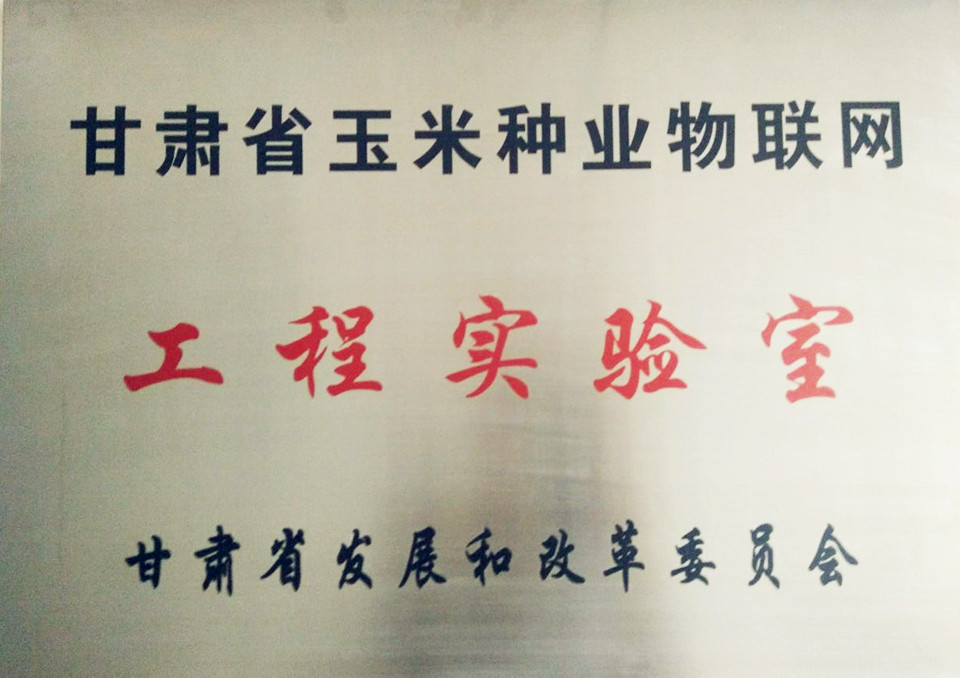 甘肃省玉米种业物联网
工程实验室
甘肃省发展和改革委员会